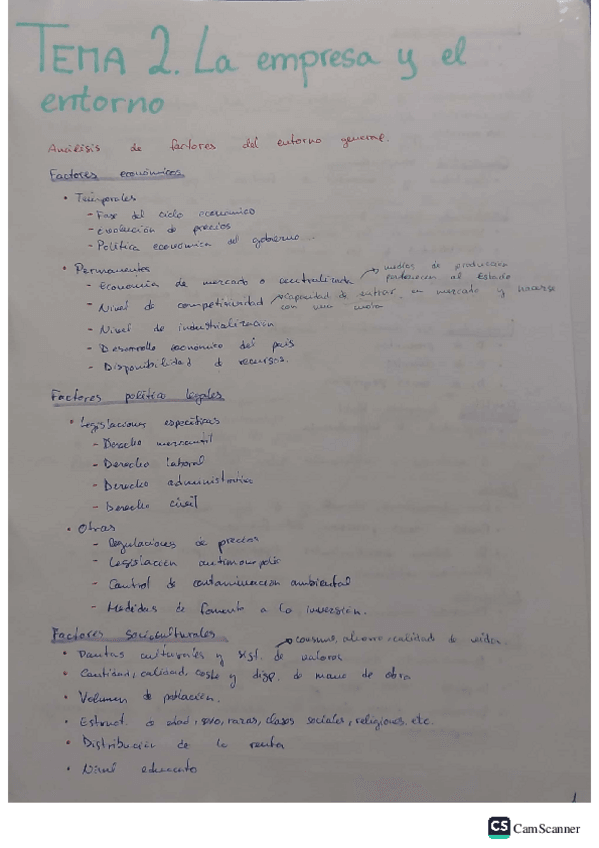 TEMA 2. La empresa y el
entorno
Análisis de factores del entorno general.
Factores económicos
• Temporales
- Fase del ciclo economico
- evolución de precios
- Política economica del gobierno...
• Permanentes
- Economía de mercado o centralizada → medios de produccion
pertenecen al Estado
- Nivel de competitividad → capacidad de entrar en mercado y hacerse
con una
- Nivel de industrialización
- Desarrollo economico del país
- Disponibilidad d recursos.
Factores político legales
• Legislaciones específicas
- Derecho mercantil
- Derecho laboral
- Derecho administrativo
- Derecho civil
• Otras
- Regulaciones de precios
- Legislación antimonopolio
- Control de contaminación ambiental
- Medidas de fomento a la inversión.
Factores socioculturales
→ consumo, ahorro, calidad de vida.
• Pautas culturales y sist. de valores
• Cantidad, calidad, coste y disp. de mano de obra
• Volumen de población.
• Estruct. d edad, sexo, razas, clases sociales, religiones. etc.
• Distribución de la renta
• Nivel educativo
1
CS CamScanner